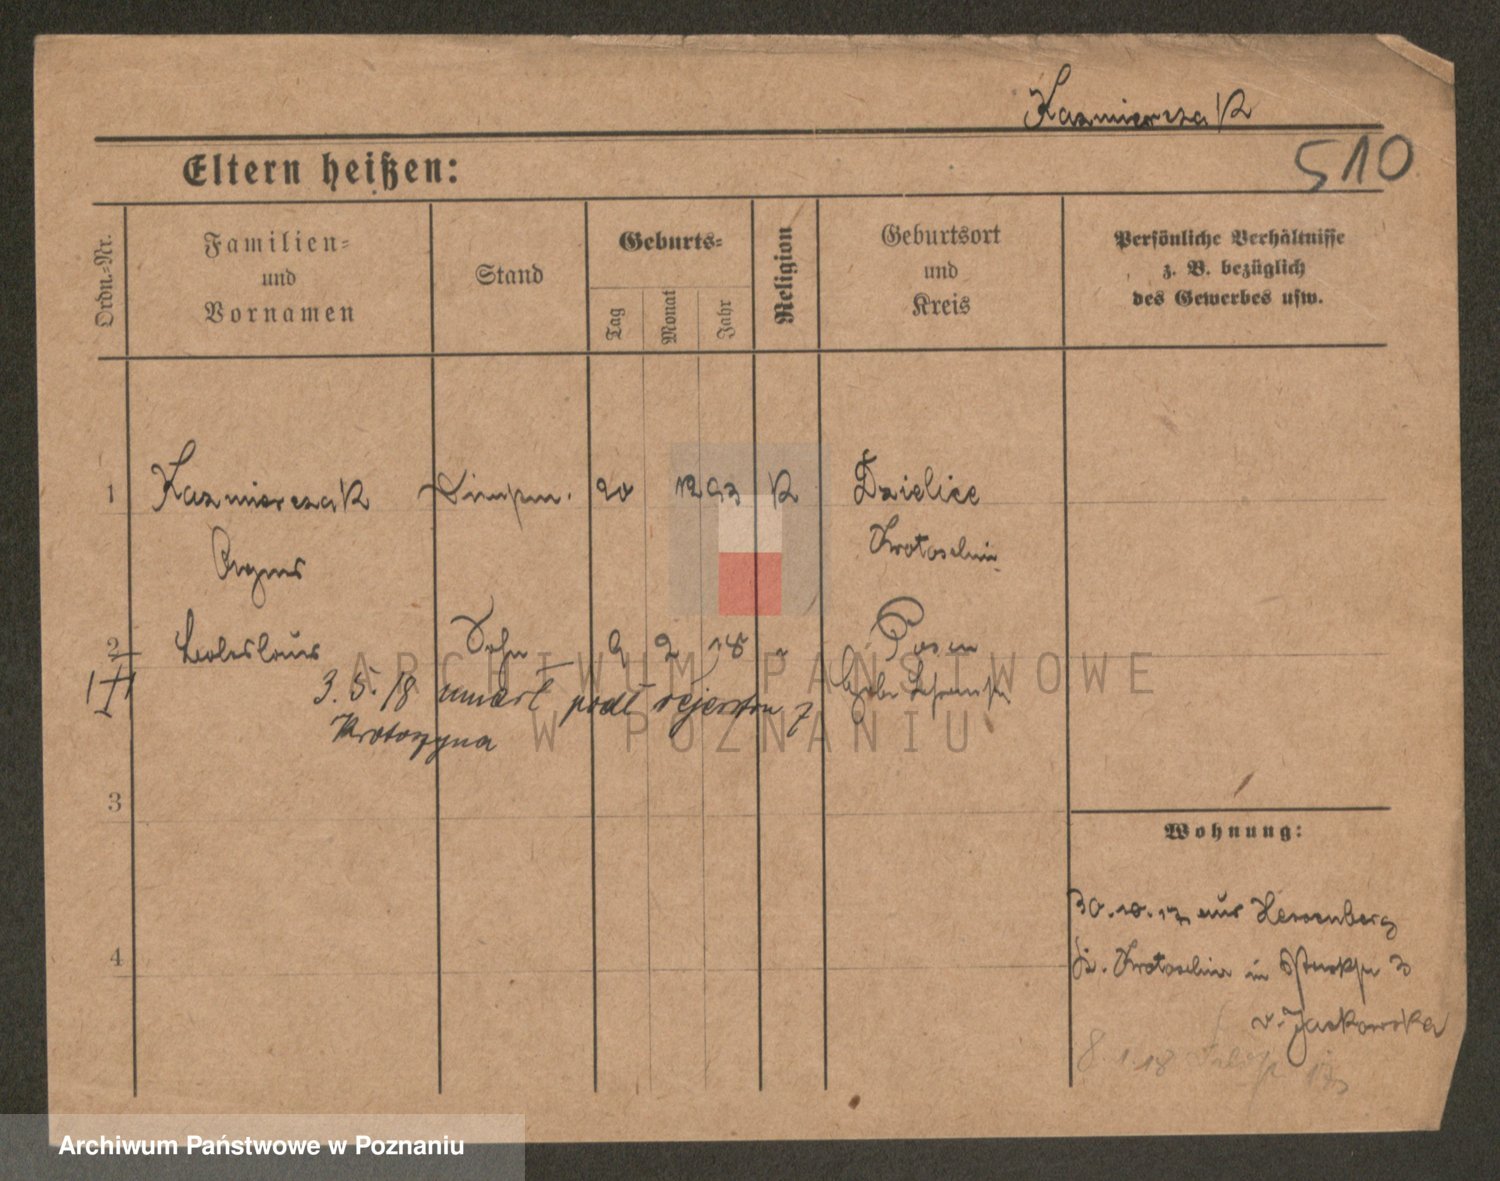 Kazmierczak
510
Eltern heißen:
Ordn.-Nr.
Familien-
und
Vornamen
Stand
Geburts-
Tag
Monat
Jahr
Religion
Geburtsort
und
Kreis
Persönliche Verhältnisse
z. B. bezüglich
des Gewerbes usw.
1 Kazmierczak 20 12 93 k Dzielice
Agnes Krotoschin
2 Boleslaus Sohn 9 2 18 " Posen
3. 5. 18 umarł podł rejestru z
Krotoszyna
3
4
Wohnung:
30.10.17 aus Herrenberg
Kr. Krotoschin in 3
v. Jackowska
8.1.18
ARCHIWUM PAŃSTWOWE
W POZNANIU
Archiwum Państwowe w Poznaniu